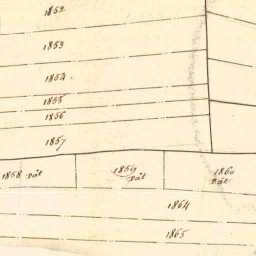 1852
1853
1854
1855
1856
1857
1858 Důl
1859 Důl
1860 Důl
1864
1865